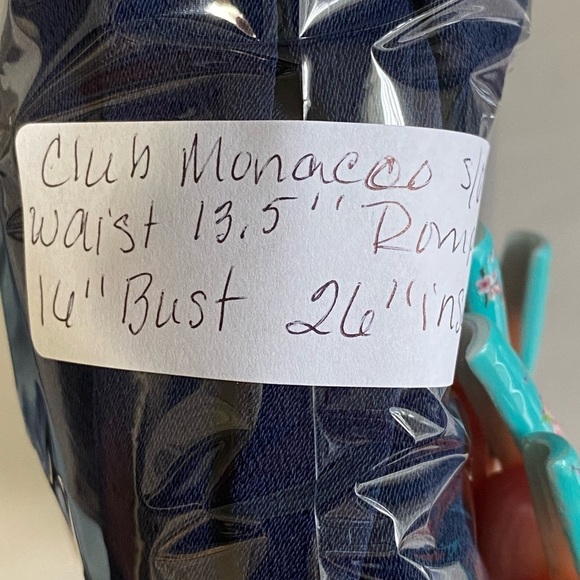 Club Monacoo s/
Waist 13.5" Rom
16" Bust 26" ins